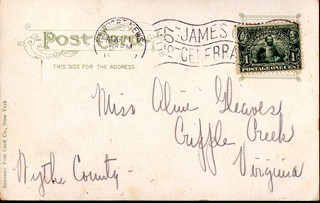 Post Card
THIS SIDE FOR THE ADDRESS.
JAMES
CELEBRA
1 POSTAGE ONE CENT 1
Miss Aline Gleaves
Cripple Creek
Virginia
Wythe County
Souvenir Post Card Co., New York